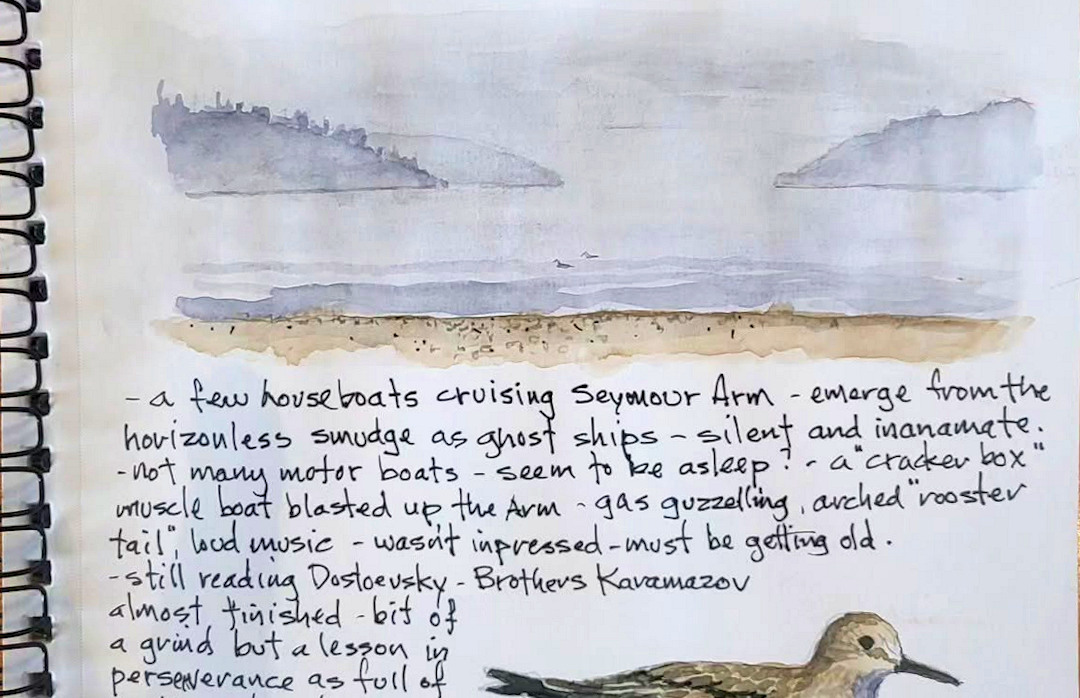 - a few houseboats cruising Seymour Arm - emerge from the
horizonless smudge as ghost ships - silent and inanamate.
- not many motor boats - seem to be asleep? - a "cracker box"
muscle boat blasted up the Arm - gas guzzelling, arched "rooster
tail", loud music - wasn't inpressed - must be getting old.
- still reading Dostoevsky - Brothers Karamazov
almost finished - bit of
a grind but a lesson in
perseverance as full of